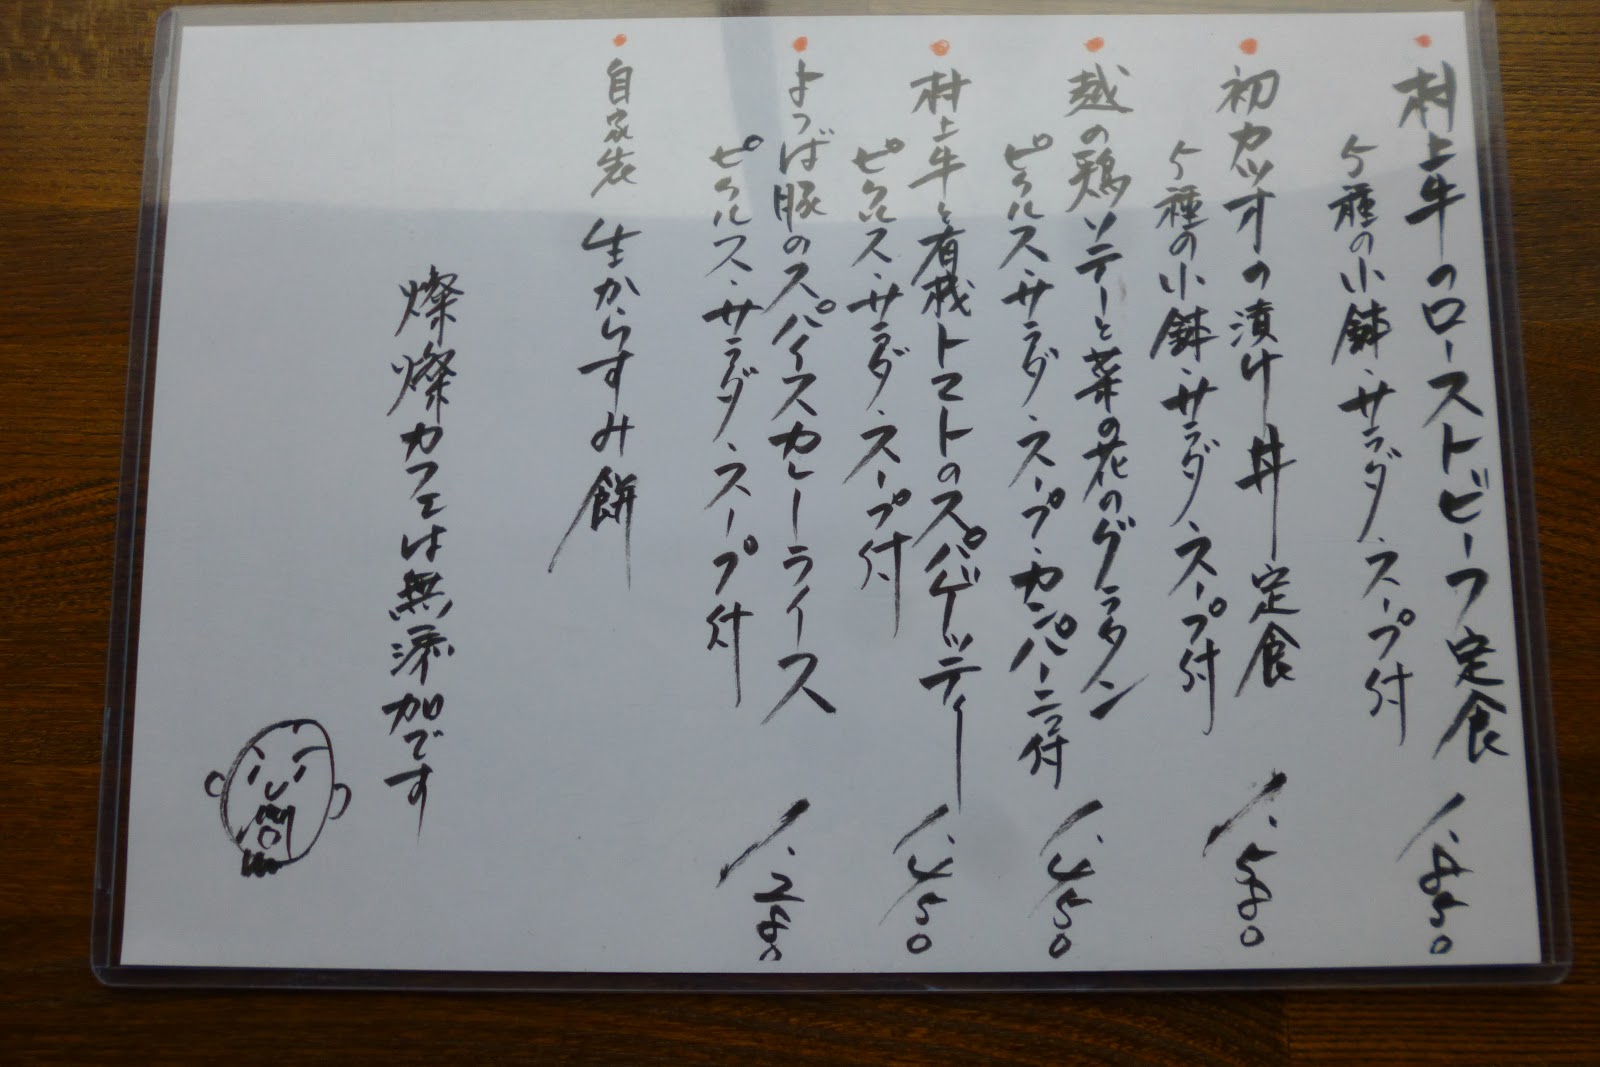 村上牛のローストビーフ定食
5種の小鉢・サラダ・スープ付
初カツオの漬け丼定食 1.580
5種の小鉢・サラダ・スープ付
越の鶏ソテーと菜の花のグラタン 1.450
ピクルス・サラダ・スープ・カンパーニュ付
村上牛と有機トマトのスパゲッティー 1.450
ピクルス・サラダ・スープ付
よつば豚のスパイスカレーライス
ピクルス・サラダ・スープ付
自家製 生からすみ餅
燦燦カフェは無添加です